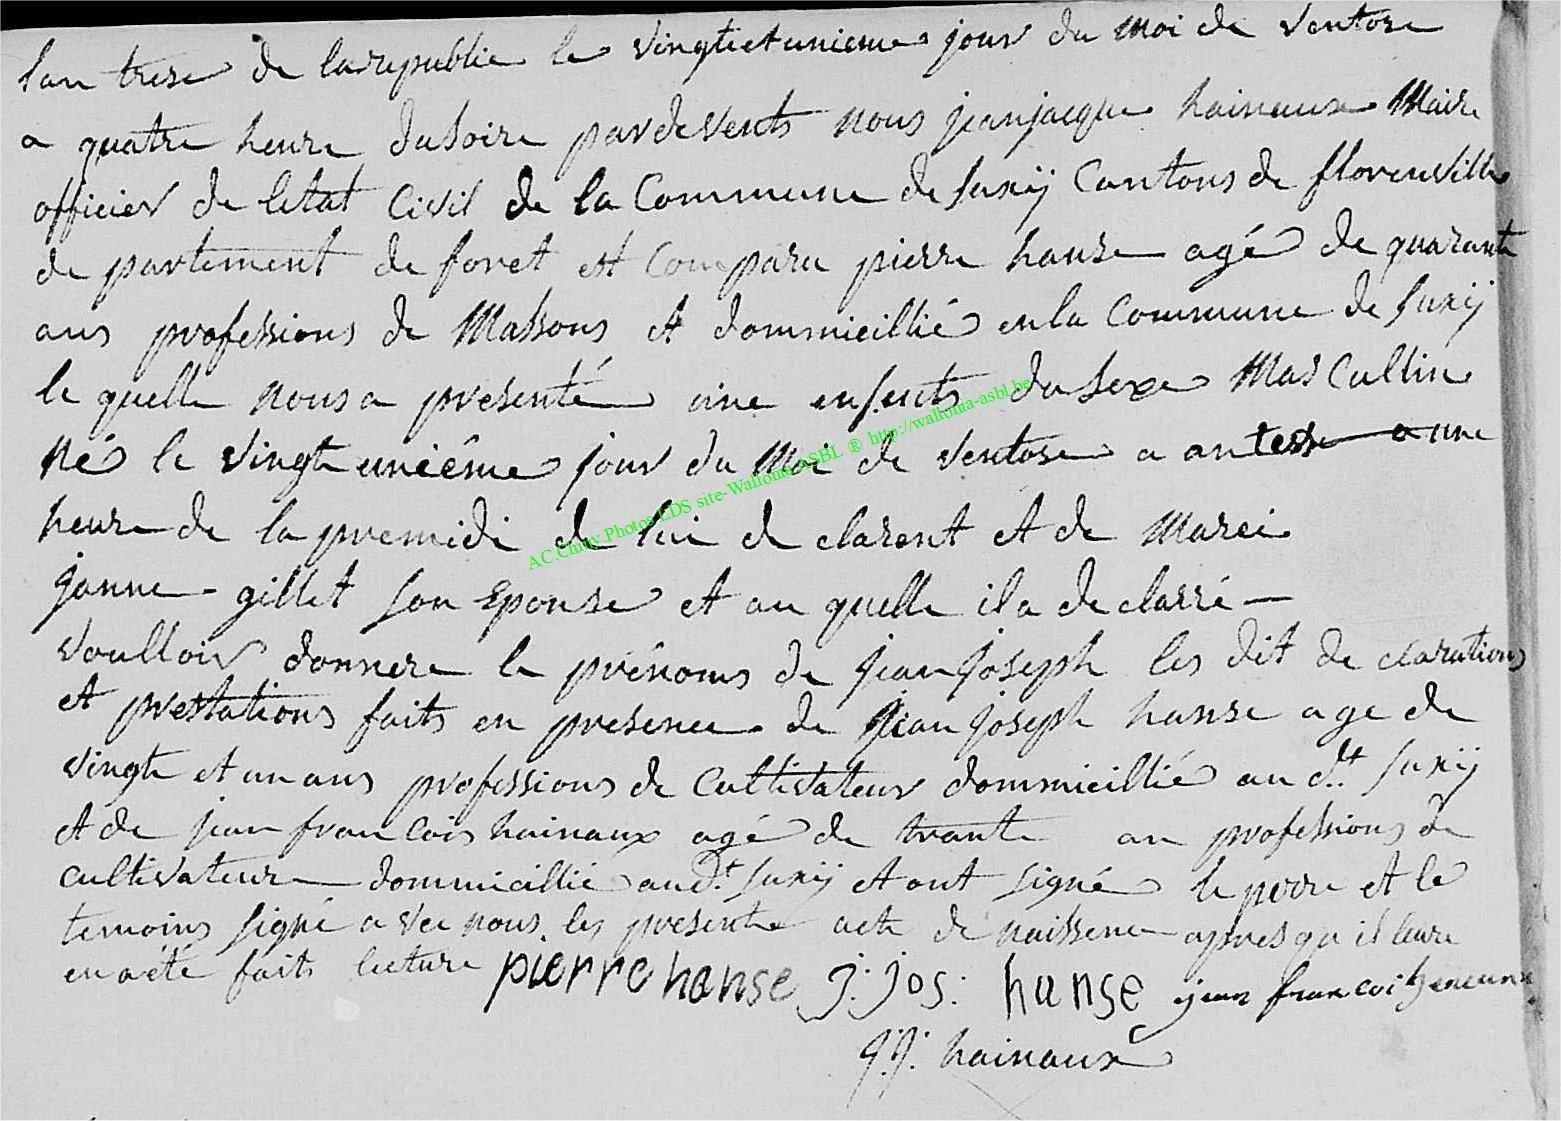 lan trese de la republie le vingtietunieme jour du moi de ventose
a quatre heure du soire pardevents nous jeanjacque hainaux Maire
officier de letat Civil de la Commune de Suxÿ Cantons de florenville
de partement de foret est Comparu pierre hanse agé de quarante
ans professions de Massons et dommicillié en la Commune de Suxÿ
le quelle nous a presenté une enfents du sexe Mas Cullin
né le vingt unieme jour du Moi de ventose a une
heure de la premidi de lui de clarent et de Marei
janne gillet son Eponse et au quelle il a de clarré
voulloir donnere le prénoms de jean joseph les dit de clarations
et prestations faits en presence de jean joseph hanse age de
vingte et un ans professions de Cultivateur dommicillié au dt. Suxÿ
et de jean fran cois hainaux agé de trante an professions de
cultivateur dommicillié au dt. Suxÿ et ont signé le perre et le
temoins signé a vec nous les presente acte de naissence apres qu il leure
en a été faits lecture pierre hanse j: jos: hanse jean francoi heneaux
j:j: hainaux
AC.Chiny Photos EDS site-Wallonia ASBL ® http://wallonia-asbl.be